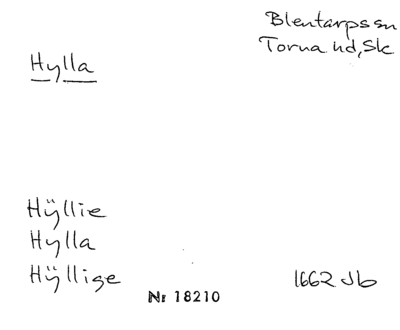 Blentarps sn
Torna hd, Sk
Hylla
Hÿllie
Hylla
Hÿllige
1662 Jb
Nr 18210